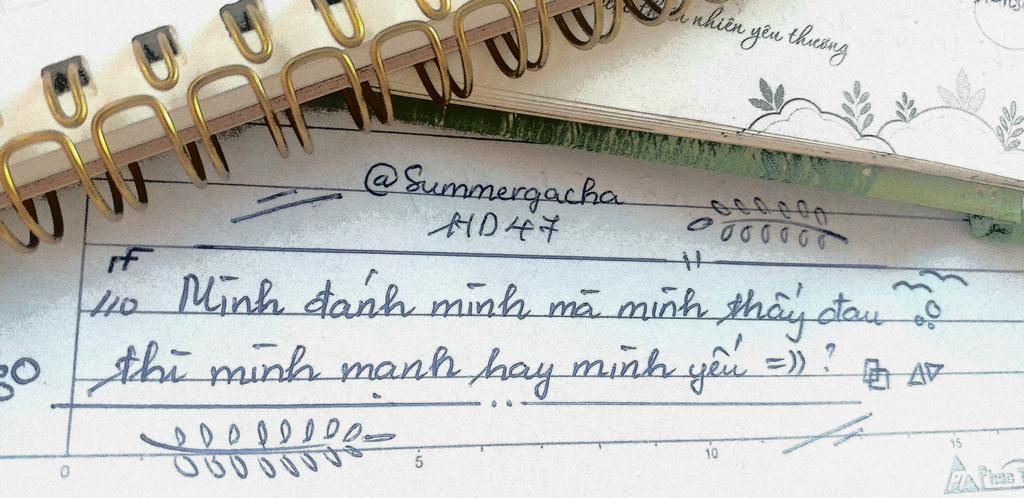 nhiên yêu thương
@Summergacha
HD47
110 Mình đánh mình mà mình thấy đau
thì mình mạnh hay mình yếu =)) ?
0 5 10 15